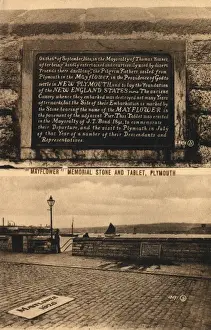 On the 6th of September, 1620, in the Mayoralty of Thomas Fownes
after being "kindly entertained and courteously used by divers
Friends there dwelling," the Pilgrim Fathers sailed from
Plymouth in the MAYFLOWER, in the Providence of God to
settle in NEW PLYMOUTH, and to lay the Foundation
of the NEW ENGLAND STATES. The ancient
Causey whence they embarked was destroyed not many Years
afterwards, but the Site of their Embarkation is marked by
the Stone bearing the name of the MAYFLOWER in
the pavement of the adjacent Pier. This Tablet was erected
in the Mayoralty of J. T. Bond 1891, to commemorate
their Departure, and the visit to Plymouth in July
of that Year of a number of their Descendants and
Representatives.
"MAYFLOWER" MEMORIAL STONE AND TABLET, PLYMOUTH
MAYFLOWER
1620